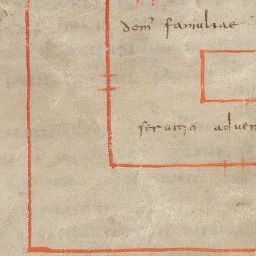 dom' familiae
servitio adven